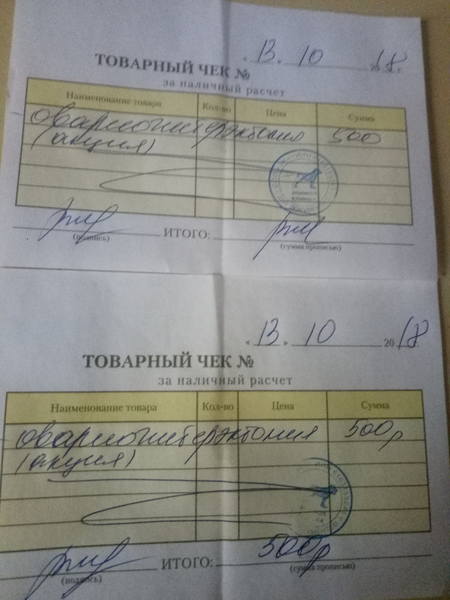 13. 10 18.
ТОВАРНЫЙ ЧЕК №
за наличный расчет
Наименование товара Кол-во Цена Сумма
овариогистерэктомия 500
(акция)
ИТОГО:
(подпись) (сумма прописью)
« 13 » 10 2018
ТОВАРНЫЙ ЧЕК №
за наличный расчет
Наименование товара Кол-во Цена Сумма
овариогистерэктомия 500р
(акция)
ИТОГО: 500р
(подпись) (сумма прописью)